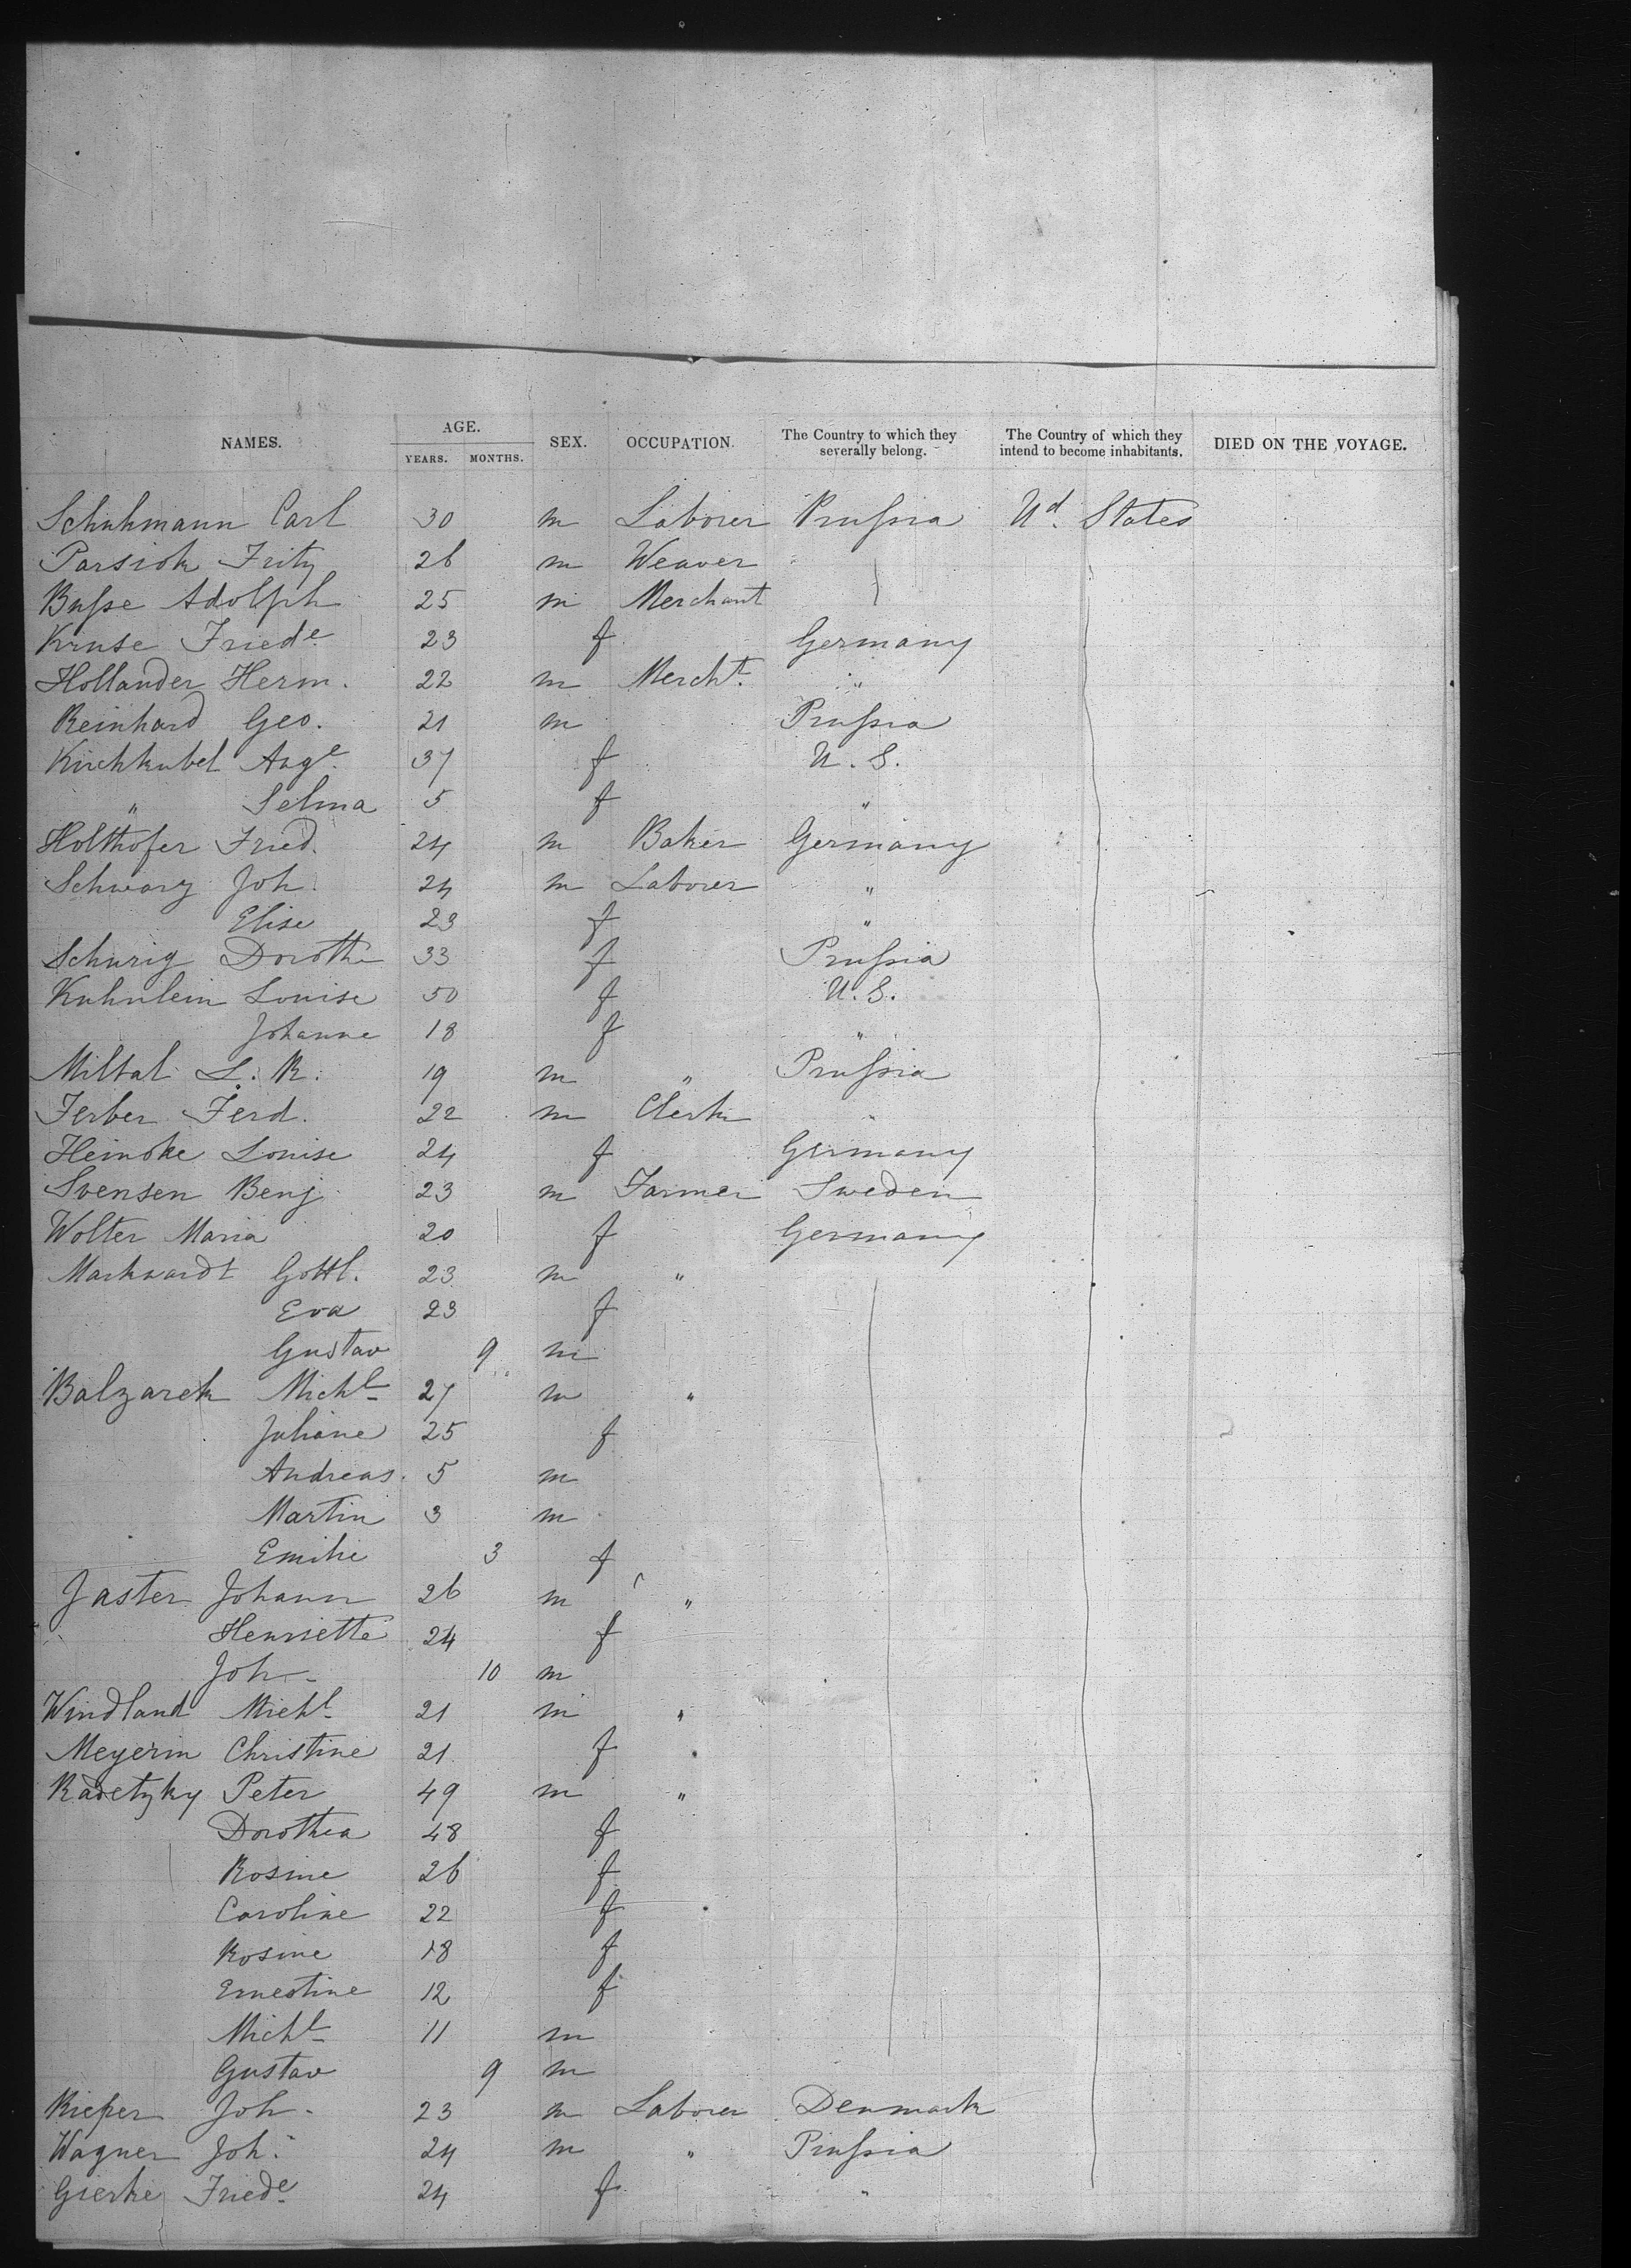 NAMES. AGE. YEARS. MONTHS. SEX. OCCUPATION. The Country to which they severally belong. The Country of which they intend to become inhabitants. DIED ON THE VOYAGE.
Schuhmann Carl 30 m Laborer Prussia Ud. States
Parsick Fritz 26 m Weaver
Busse Adolph 25 m Merchant
Kruse Friede 23 f Germany
Hollander Herm. 22 m Mercht. "
Reinhard Geo. 21 m Prussia
Kirchkubel Auge. 37 f U.S.
" Selma 5 f "
Holthofer Fried. 24 m Baker Germany
Schwarz Joh. 24 m Laborer "
Elise 23 f "
Schurig Doroth 33 f Prussia
Kuhnlein Louise 50 f U.S.
Johanne 18 f "
Miltal L. R. 19 m " Prussia
Ferber Ferd. 22 m Clerk "
Heinoke Louise 24 f Germany
Svensen Benj. 23 m Farmer Sweden
Wolter Maria 20 f Germany
Markwardt Gottl. 23 m "
Eva 23 f
Gustav 9 m
Balzarek Michl 27 m "
Juliane 25 f
Andreas. 5 m
Martin 3 m
Emilie 3 f
Jaster Johann 26 m "
Henriette 24 f
Joh 10 m
Windland Michl 21 m "
Meyerin Christine 21 f "
Radetzky Peter 49 m "
Dorothea 48 f
Rosine 26 f
Caroline 22 f
Rosine 18 f
Ernestine 12 f
Michl 11 m
Gustav 9 m
Rieper Joh. 23 m Laborer Denmark
Wagner Joh. 24 m " Prussia
Gierke Friede 24 f "